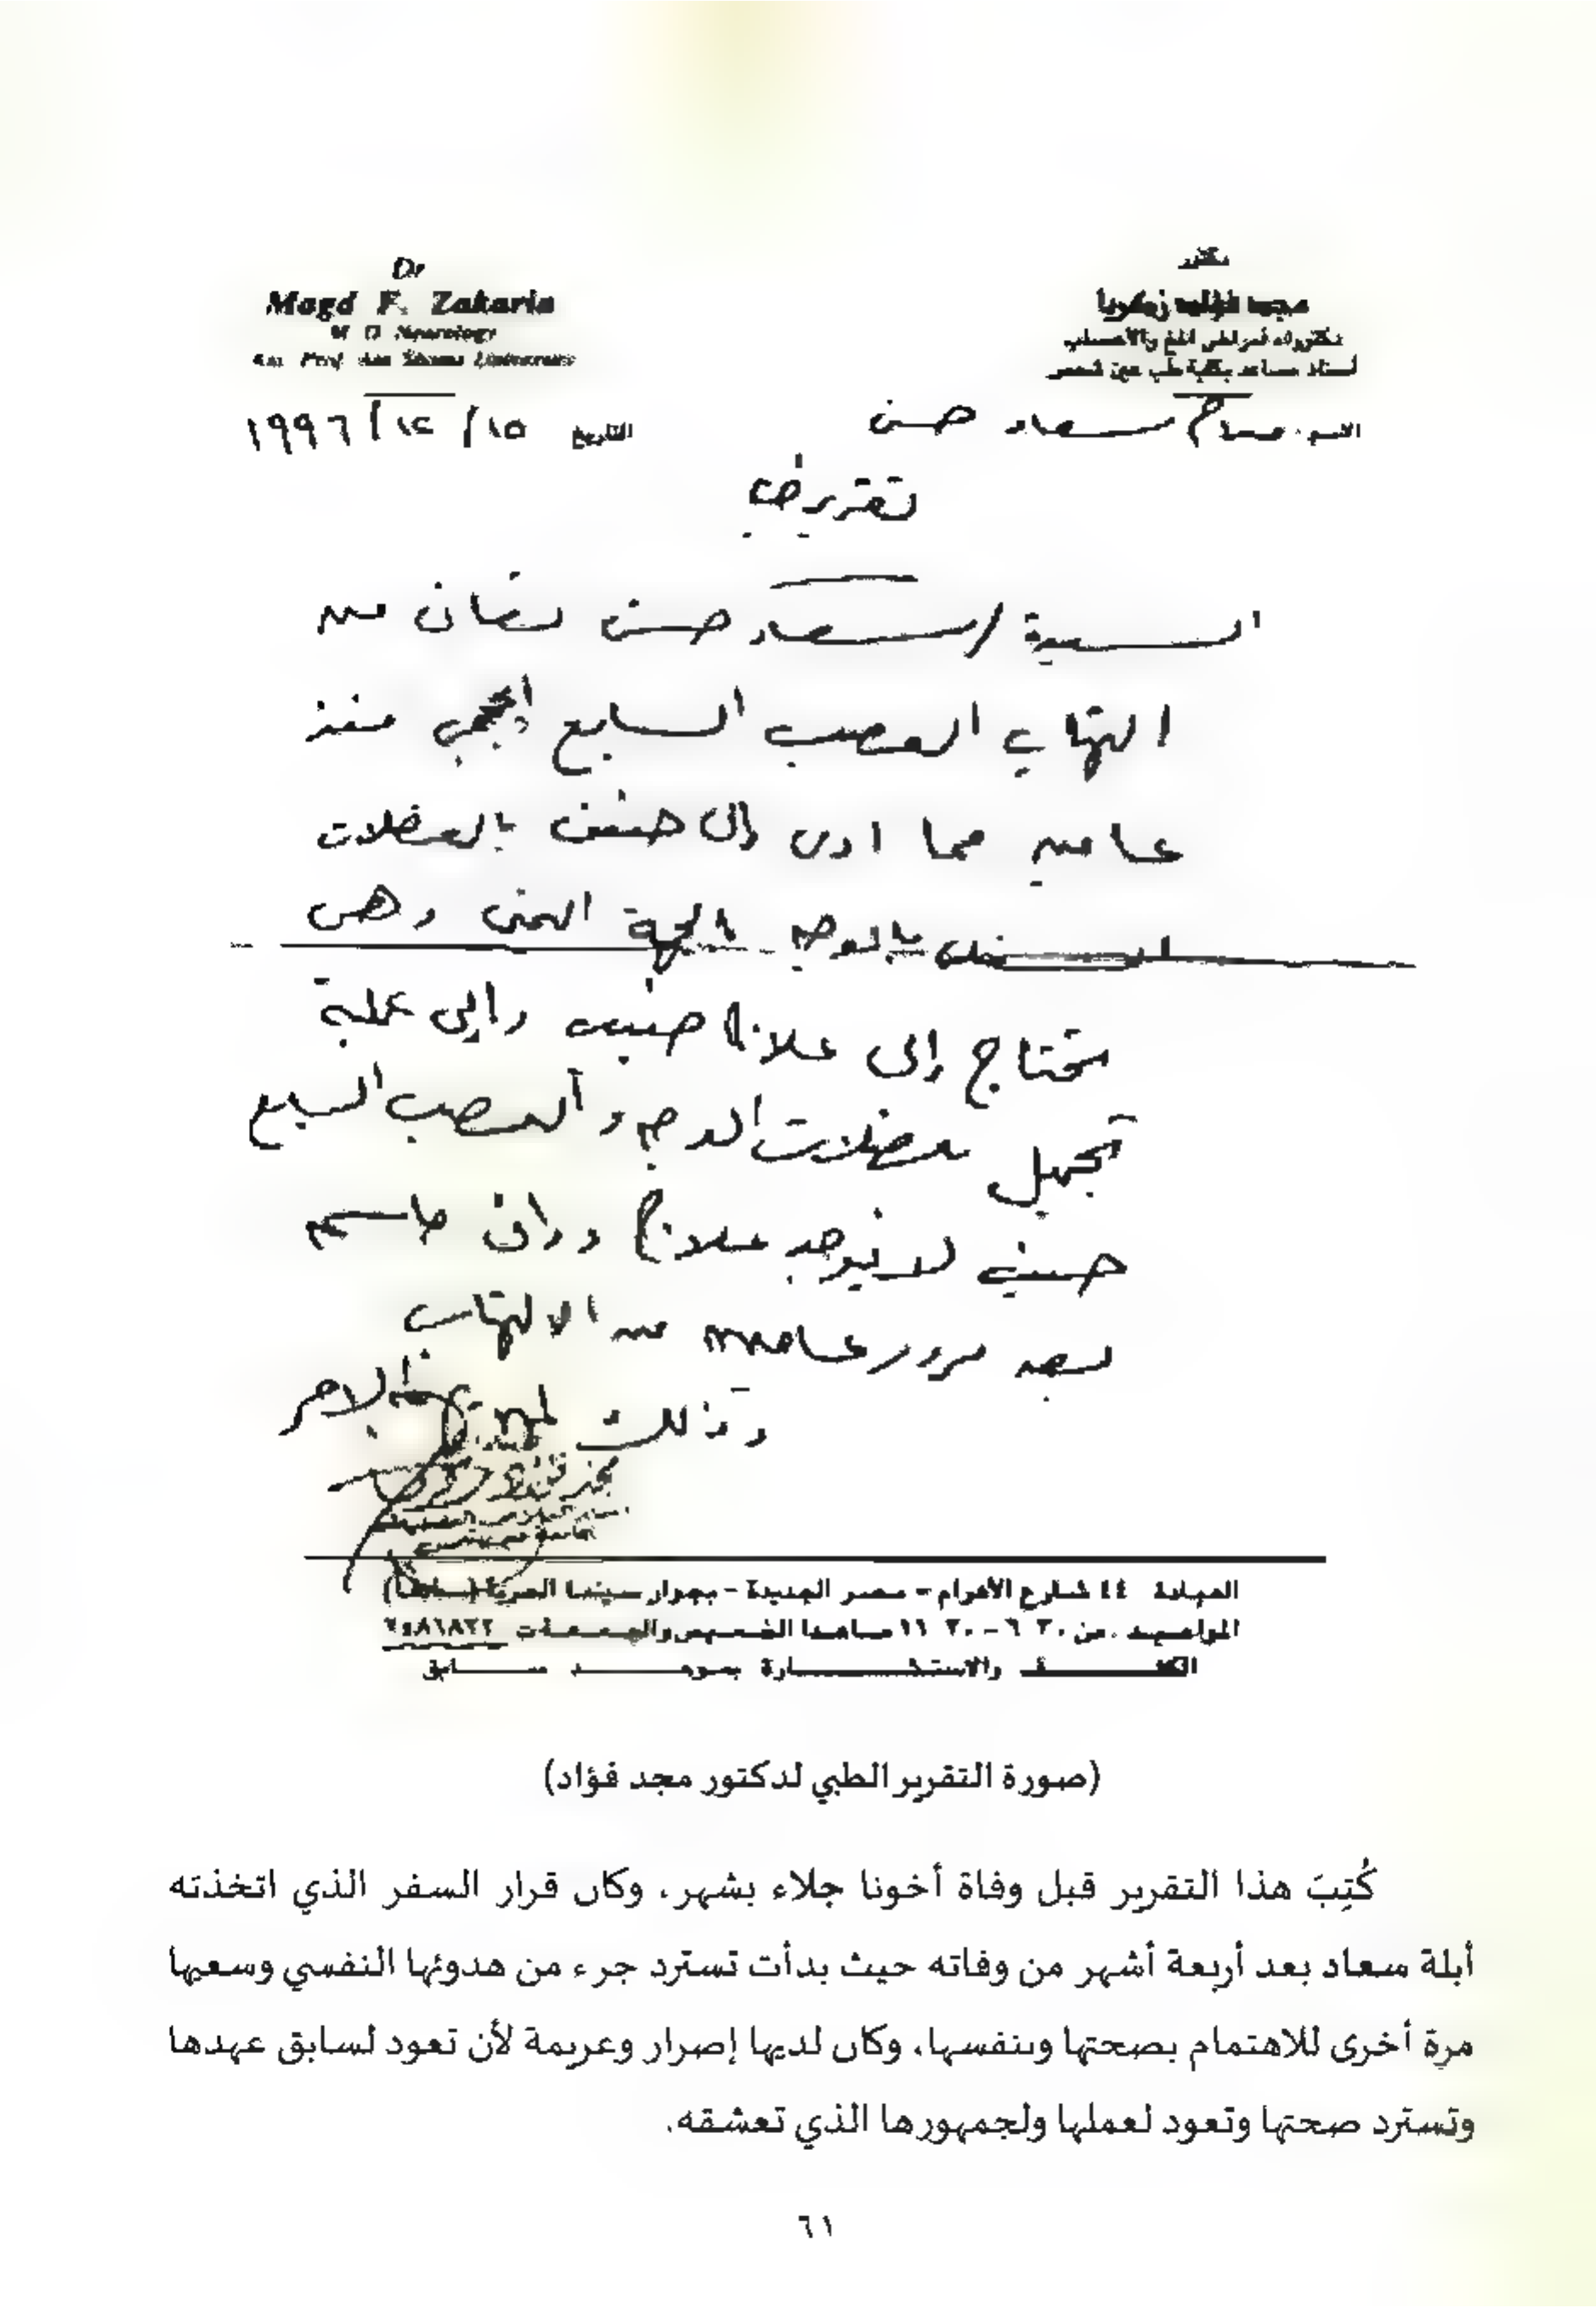 Dr
Magd F. Zakaria
M D Neurology
Ass. Prof. Ain Shams University
دكتور
مجد فؤاد زكريا
دكتوراه أمراض المخ والأعصاب
أستاذ مساعد بكلية طب عين شمس
الاسم سعاد حسن
التاريخ ١٥ / ١٢ / ١٩٩٦
تقرير طبي
السيدة / سعاد حسن تعانى من
التهاب العصب السابع منذ
عامين مما ادى إلى بالعضلات
بالوجه بالجهة اليمنى وهى
تحتاج إلى علاج وإلى عملية
تجميل لعضلات الوجه والعصب السابع
حيث لا يوجد علاج حاسم
بعد مرور عامين من الالتهاب
وذلك الأمر
العيادة ٤٤ شارع الأهرام - مصر الجديدة - بجوار سينما الحرية (سابقا)
المواعيد من ٦.٣٠ - ١١.٣٠ ماعدا الخميس والجمعة ت ٢٥٨١٨٢٢
الكشف والاستشارة بموعد سابق
(صورة التقرير الطبي لدكتور مجد فؤاد)
كُتِبَ هذا التقرير قبل وفاة أخونا جلاء بشهر، وكان قرار السفر الذي اتخذته
أبلة سعاد بعد أربعة أشهر من وفاته حيث بدأت تسترد جزء من هدوئها النفسي وسعيها
مرة أخرى للاهتمام بصحتها وبنفسها، وكان لديها إصرار وعزيمة لأن تعود لسابق عهدها
وتسترد صحتها وتعود لعملها ولجمهورها الذي تعشقه.
٦١